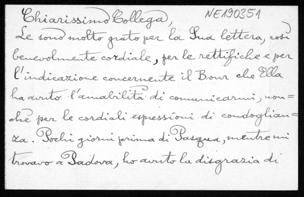 Chiarissimo Collega,
NE190351
Le sono molto grato per la Sua lettera, così
benevolmente cordiale, per le rettifiche e per
l'indicazione concernente il Bour che Ella
ha avuto l'amabilità di comunicarmi, non=
chè per le cordiali espressioni di condoglian=
za. Pochi giorni prima di Pasqua, mentre mi
trovavo a Padova, ho avuto la disgrazia di